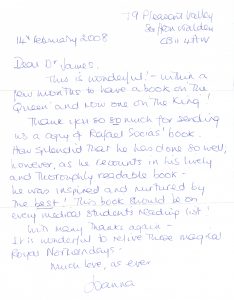 79 Pleasant Valley
Saffron Walden
CB11 4AW
14th February 2008
Dear Dr James,
This is wonderful! - within a
few months to have a book on the
Queen and now one on the King!
Thank you so so much for sending
us a copy of Rafael Socias' book.
How splendid that he has done so well,
however, as he recounts in his lively
and thoroughly readable book -
he was inspired and nurtured by
the best! This book should be on
every medical students reading list!
With many thanks again -
It is wonderful to relive those magical
Royal Northern days -
Much love, as ever
Joanna